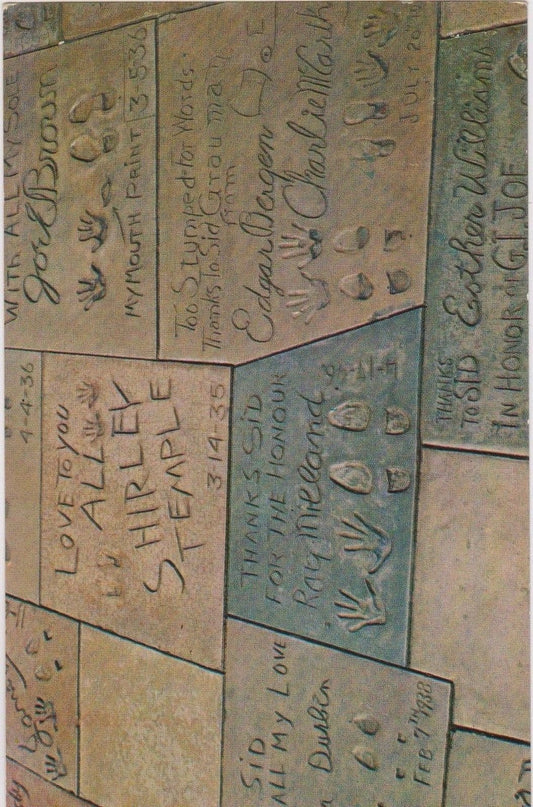 WITH ALL MY SOLE
Joe E Brown
MY MOUTH PRINT
3-5-36
Too Stumped For Words.
Thanks To Sid Grauman
From
Edgar Bergen
Charlie McCarth
JULY 20
THANKS
TO SID
Esther Williams
IN HONOR OF G.I. JOE
4-4-36
LOVE TO YOU
ALL
SHIRLEY
TEMPLE
3-14-35
THANKS SID
FOR THE HONOUR
Ray Milland
SID
ALL MY LOVE
Durbin
FEB 7TH 1938